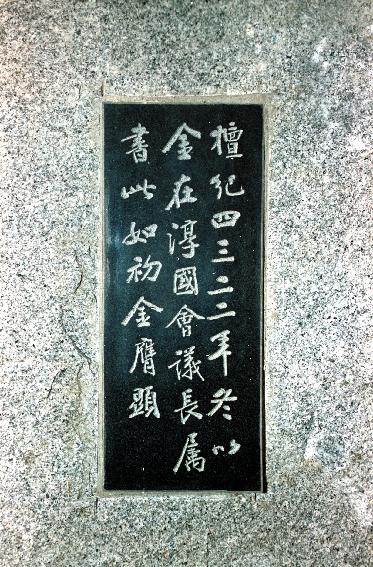 檀紀四三二二年冬以
金在淳國會議長属
書此如初金膺顯